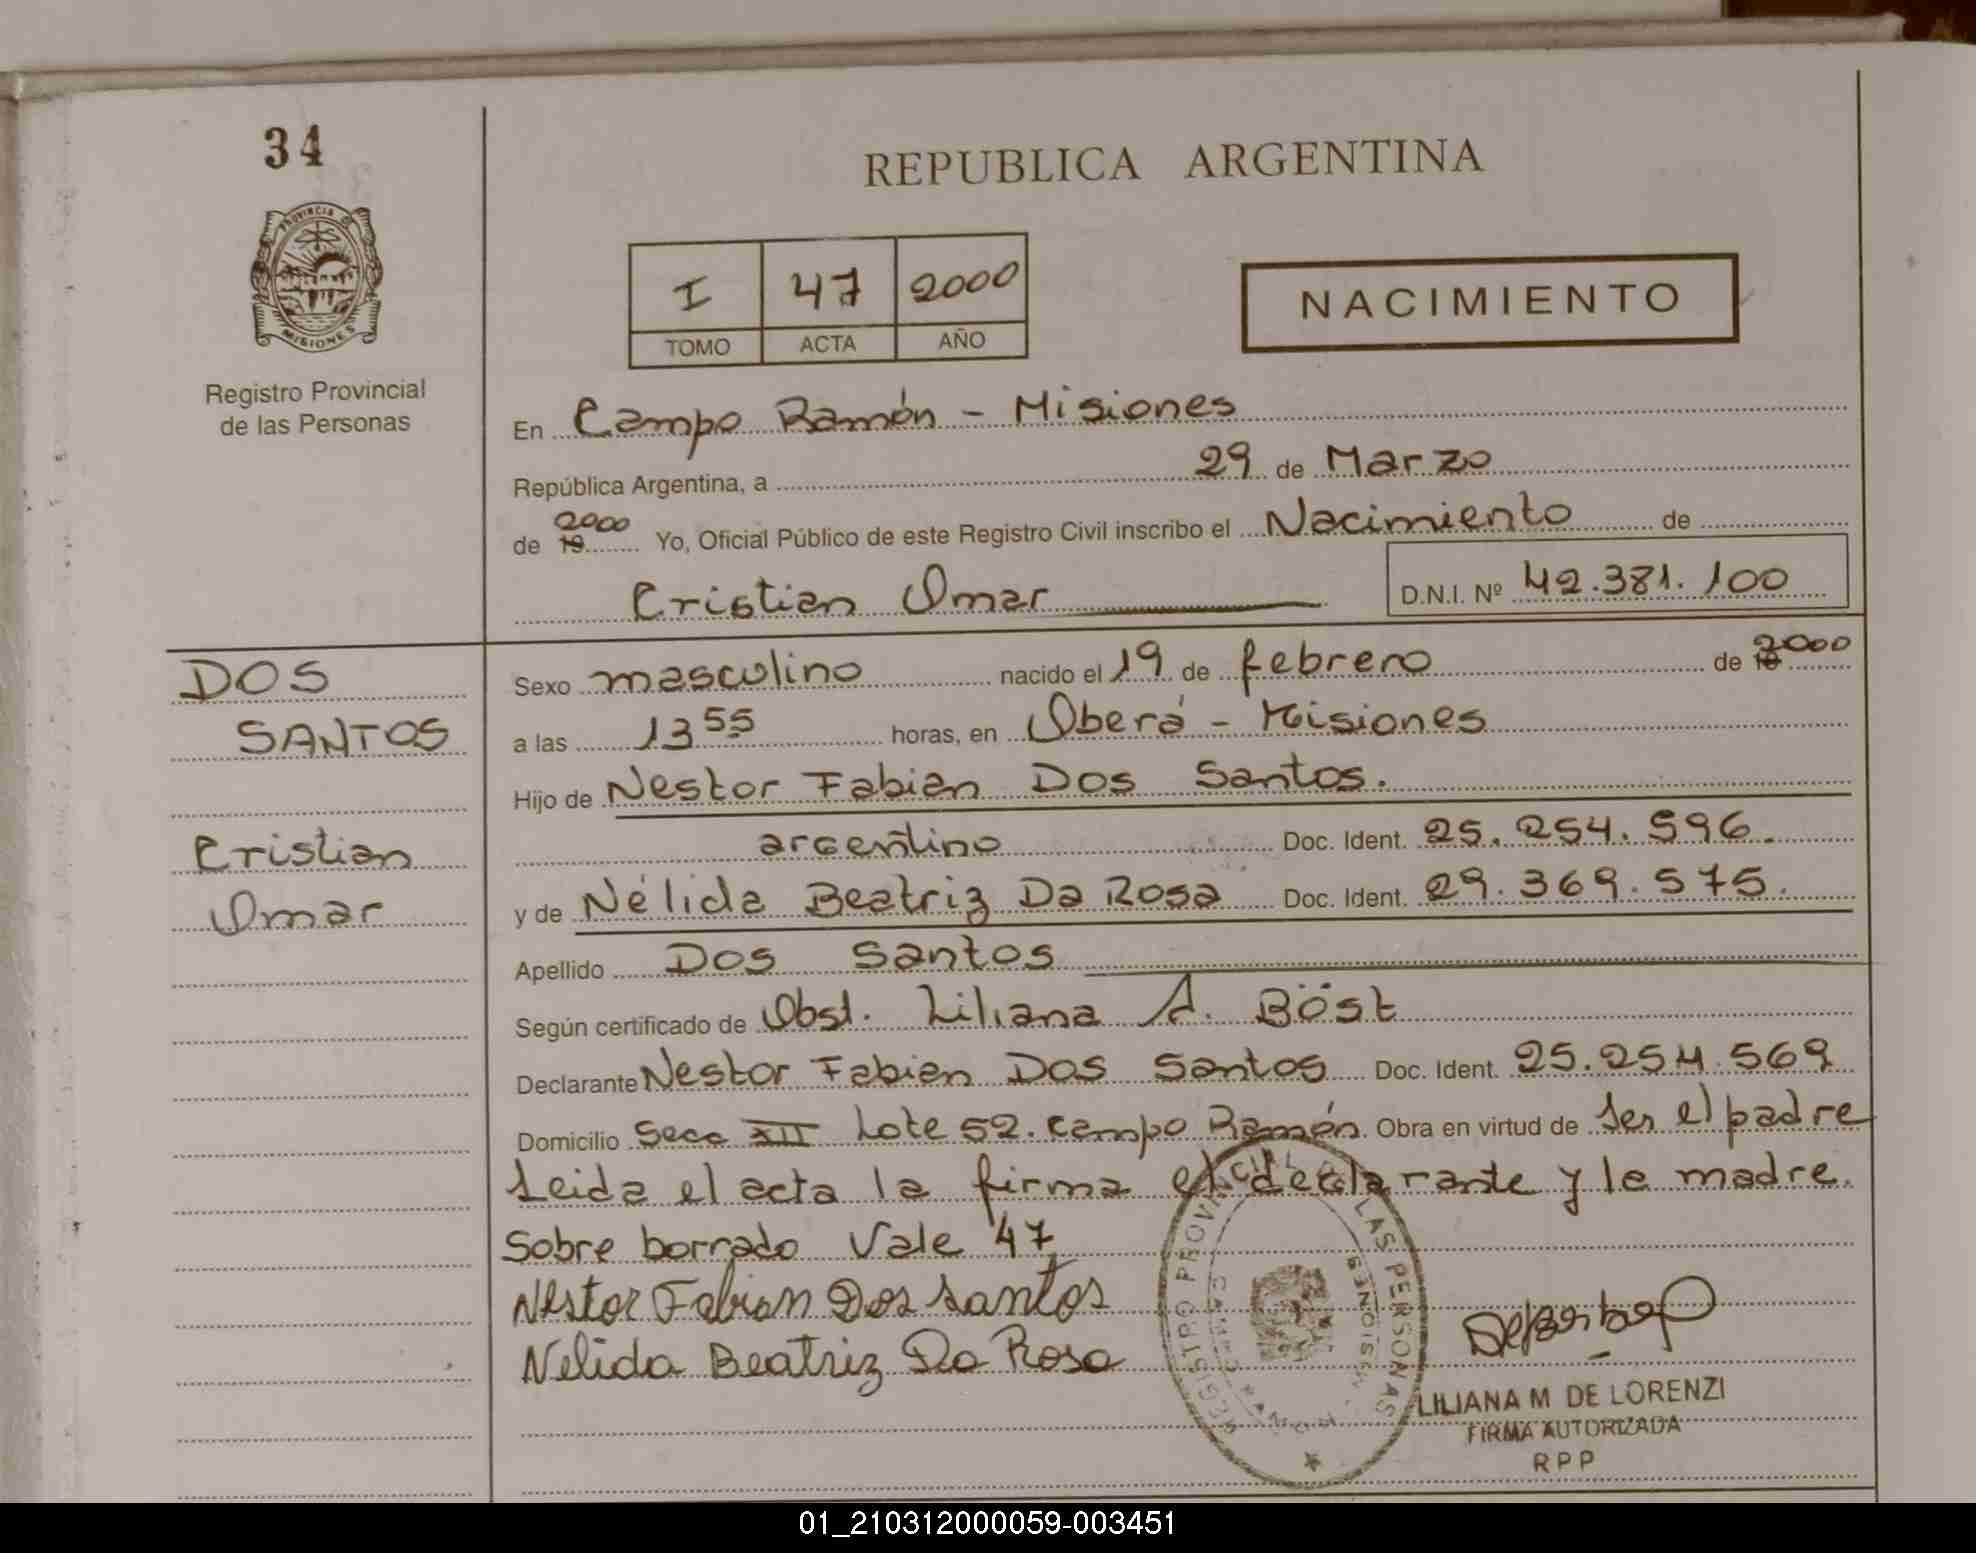 34
REPUBLICA ARGENTINA
PROVINCIA DE
MISIONES
Registro Provincial
de las Personas
I 47 2000
TOMO ACTA AÑO
NACIMIENTO
En Campo Ramón - Misiones
República Argentina, a 29 de Marzo
de 19 2000 Yo, Oficial Público de este Registro Civil inscribo el Nacimiento de
Cristian Omar D.N.I. Nº 42.381.100
DOS
SANTOS
Cristian
Omar
Sexo masculino nacido el 19 de febrero de 19 2000
a las 13 55 horas, en Oberá - Misiones
Hijo de Nestor Fabian Dos Santos.
argentino Doc. Ident. 25.254.596.
y de Nélida Beatriz Da Rosa Doc. Ident. 29.369.575.
Apellido Dos Santos
Según certificado de Obst. Liliana A. Böst
Declarante Nestor Fabian Dos Santos Doc. Ident. 25.254.569
Domicilio Secc XII Lote 52. Campo Ramón. Obra en virtud de Ser el padre
Leida el acta la firma el declarante y la madre.
Sobre borrado Vale 47
Nestor Fabian Dos Santos
Nelida Beatriz Da Rosa
REGISTRO PROVINCIAL LAS PERSONAS
CAMPO RAMON - MISIONES
LILIANA M DE LORENZI
FIRMA AUTORIZADA
RPP
01_210312000059-003451